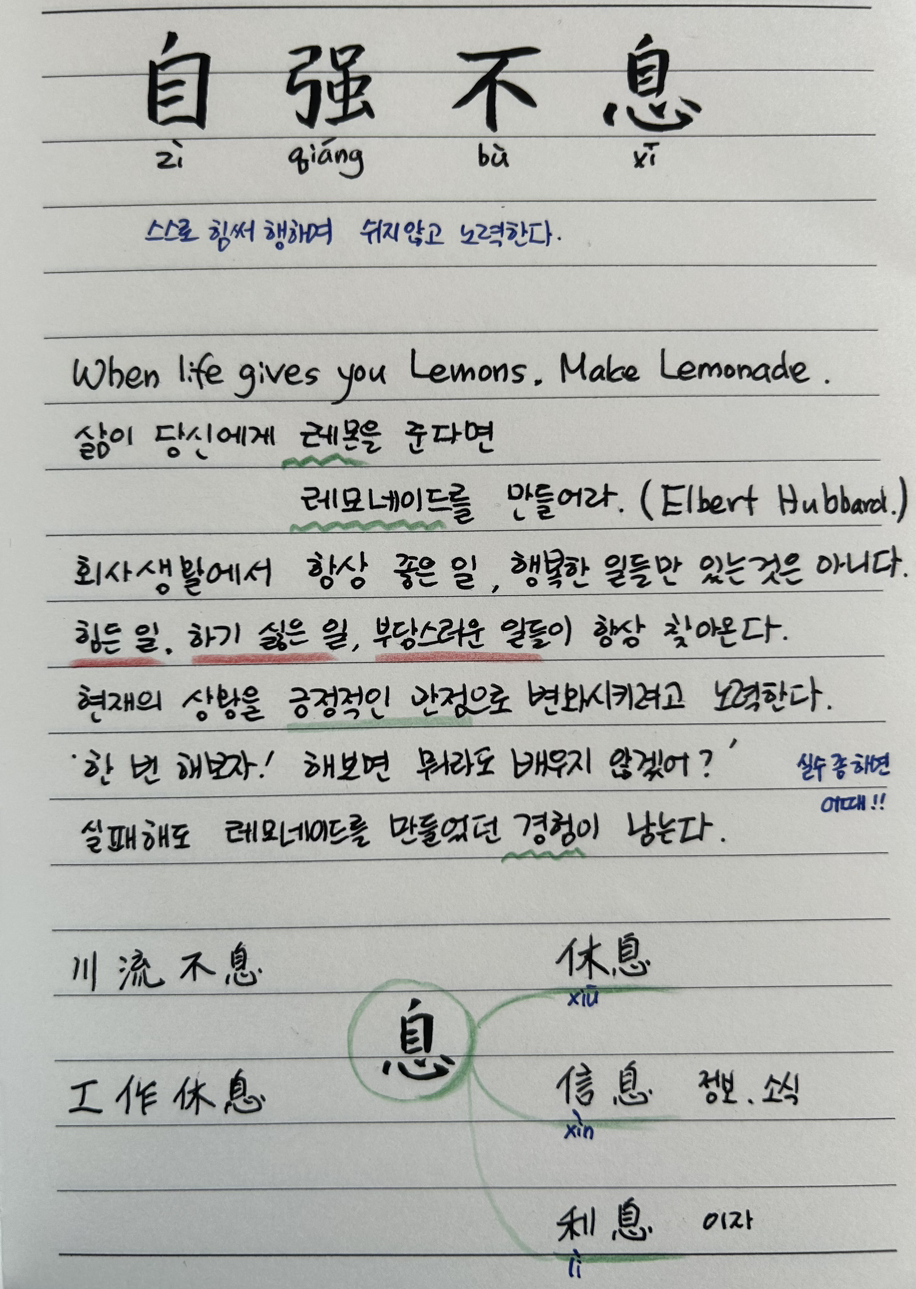 自强不息
zì qiáng bù xī
스스로 힘써 행하며 쉬지않고 노력한다.
When life gives you Lemons. Make Lemonade.
삶이 당신에게 레몬을 준다면
레모네이드를 만들어라. (Elbert Hubbard.)
회사생활에서 항상 좋은 일, 행복한 일들만 있는것은 아니다.
힘든 일. 하기 싫은 일, 부담스러운 일들이 항상 찾아온다.
현재의 상황을 긍정적인 관점으로 변화시키려고 노력한다.
'한 번 해보자! 해보면 뭐라도 배우지 않겠어?'
실수 좀 하면
어때!!
실패해도 레모네이드를 만들었던 경험이 남는다.
川流不息
休息
xiū
息
工作休息
信息 정보. 소식
xìn
利息 이자
lì